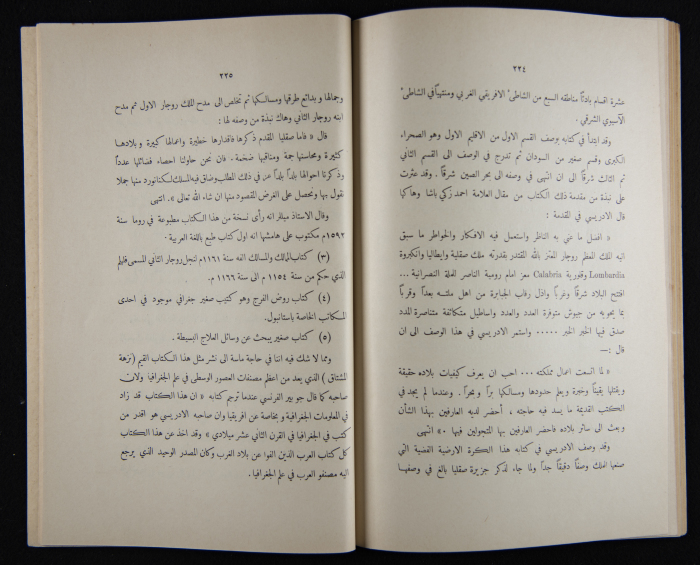 ٢٢٤
عشرة اقسام بادئاً مناطقه السبع من الشاطئ الافريقي الغربي ومنتهياً في الشاطئ
الآسيوي الشرقي .
وقد ابتدأ في كتابه بوصف القسم الاول من الاقليم الاول وهو الصحراء
الكبرى وقسم صغير من السودان ثم تدرج في الوصف الى القسم الثاني
ثم الثالث شرقاً الى ان انتهى في وصفه الى بحر الصين شرقاً . وقد عثرت
على نبذة من مقدمة ذلك الكتاب من مقال العلامة احمد زكي باشا وهاكها
قال الادريسي في المقدمة :
« افضل ما عني به الناظر واستعمل فيه الافكار والخواطر ما سبق
اليه الملك المعظم روجار المعتز بالله المقتدر بقدرته ملك صقلية وايطاليا وانكبردة
Lombardia وقلورية Calabria معز امام رومية الناصر للملة النصرانية ...
افتتح البلاد شرقاً وغرباً واذل رقاب الجبابرة من اهل ملته بعداً وقرباً
بما يحويه من جيوش متوفرة العدد والعدد واساطيل متكاثفة متناصرة المدد
صدق فيها الخبر الخبر ..... واستمر الادريسي في هذا الوصف الى ان
قال :—
« لما اتسعت اعمال مملكته ... احب ان يعرف كيفيات بلاده حقيقة
ويقتلها يقيناً وخبرة ويعلم حدودها ومسالكها براً وبحراً . وعندما لم يجد في
الكتب القديمة ما يسد فيه حاجته ، أحضر لديه العارفين بهذا الشأن
وبعث الى سائر بلاده فاحضر العارفين بها المتجولين فيها .» انتهى
وقد وصف الادريسي في كتابه هذا الكرة الارضية الفضية التي
صنعها الملك وصفاً دقيقاً جداً ولما جاء لذكر جزيرة صقليا بالغ في وصفها
٢٢٥
وجمالها وبدائع طرقها ومسالكها ثم تخلص الى مدح الملك روجار الاول ثم مدح
ابنه روجار الثاني وهاك نبذة من وصفه لها :
قال « فاما صقليا المقدم ذكرها فاقدارها خطيرة واعمالها كبيرة وبلادها
كثيرة ومحاسنها جمة ومناقبها ضخمة . فان نحن حاولنا احصاء فضائلها عدداً
وذكرنا احوالها بلداً بلداً عز في ذلك المطلب وضاق فيه المسلك لكنا نورد منها جملا
نقول بها ونحصل على الغرض المقصود منها ان شاء الله تعالى » . انتهى
وقال الاستاذ ميللر انه رأى نسخة من هذا الكتاب مطبوعة في روما سنة
١٥٩٢م مكتوب على هامشها انه اول كتاب طبع باللغة العربية .
(٣) كتاب الممالك والمسالك الفه سنة ١١٦١م لنجل روجار الثاني المسمى غليم
الذي حكم من سنة ١١٥٤ م الى سنة ١١٦٦ م .
(٤) كتاب روض الفرج وهو كتيب صغير جغرافي موجود في احدى
المكاتب الخاصة باستانبول .
(٥) كتاب صغير يبحث عن وسائل العلاج البسيطة .
ومما لا شك فيه اننا في حاجة ماسة الى نشر مثل هذا الكتاب القيم (نزهة
المشتاق ) الذي يعد من اعظم مصنفات العصور الوسطى في علم الجغرافيا ولات
صاحبه كما قال جوبير الفرنسي عندما ترجم كتابه « ان هذا الكتاب قد زاد
في المعلومات الجغرافية وبخاصة عن افريقيا وان صاحبه الادريسي هو اقدر من
كتب في الجغرافيا في القرن الثاني عشر ميلادي » وقد اخذ عن هذا الكتاب
كل كتاب العرب الذين الفوا عن بلاد الغرب وكان المصدر الوحيد الذي يرجع
اليه مصنفو العرب في علم الجغرافيا .